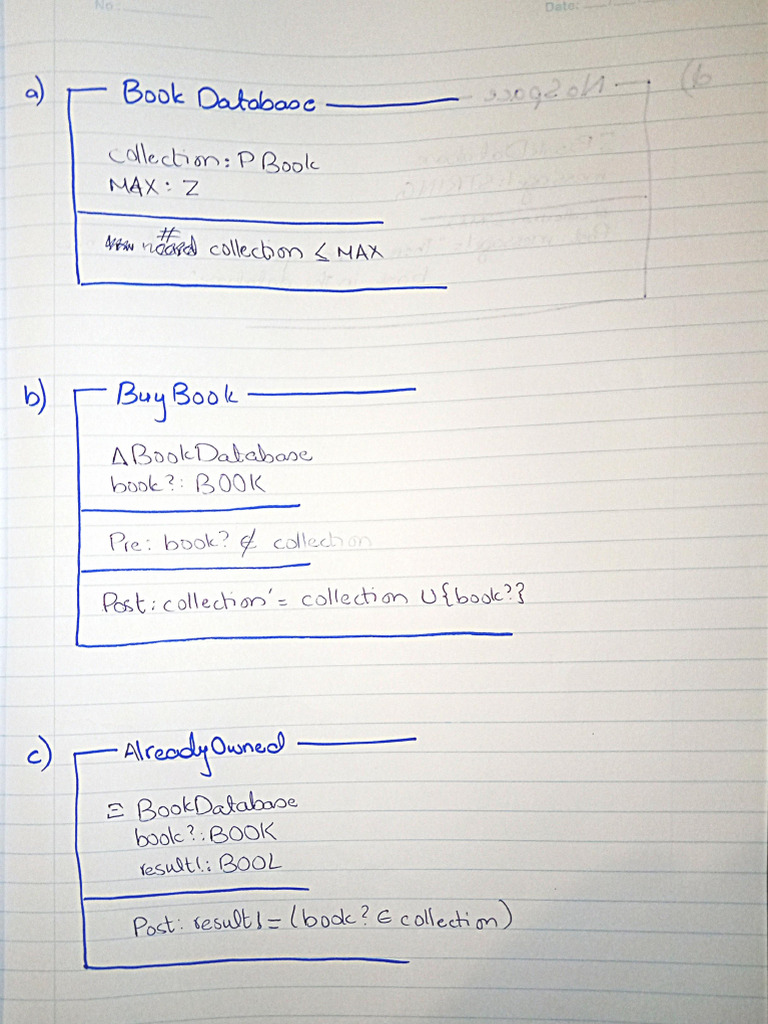 No: Date:
a) Book Database
collection: P Book
MAX: Z
# collection ≤ MAX
b) BuyBook
Δ BookDatabase
book?: BOOK
Pre: book? ∉ collection
Post: collection' = collection ∪ {book?}
c) AlreadyOwned
Ξ BookDatabase
book?: BOOK
result!: BOOL
Post: result! = (book? ∈ collection)
d) No Space